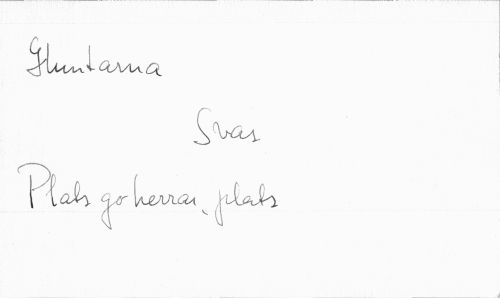 Gluntarna
Svar
Plats go herrar, plats